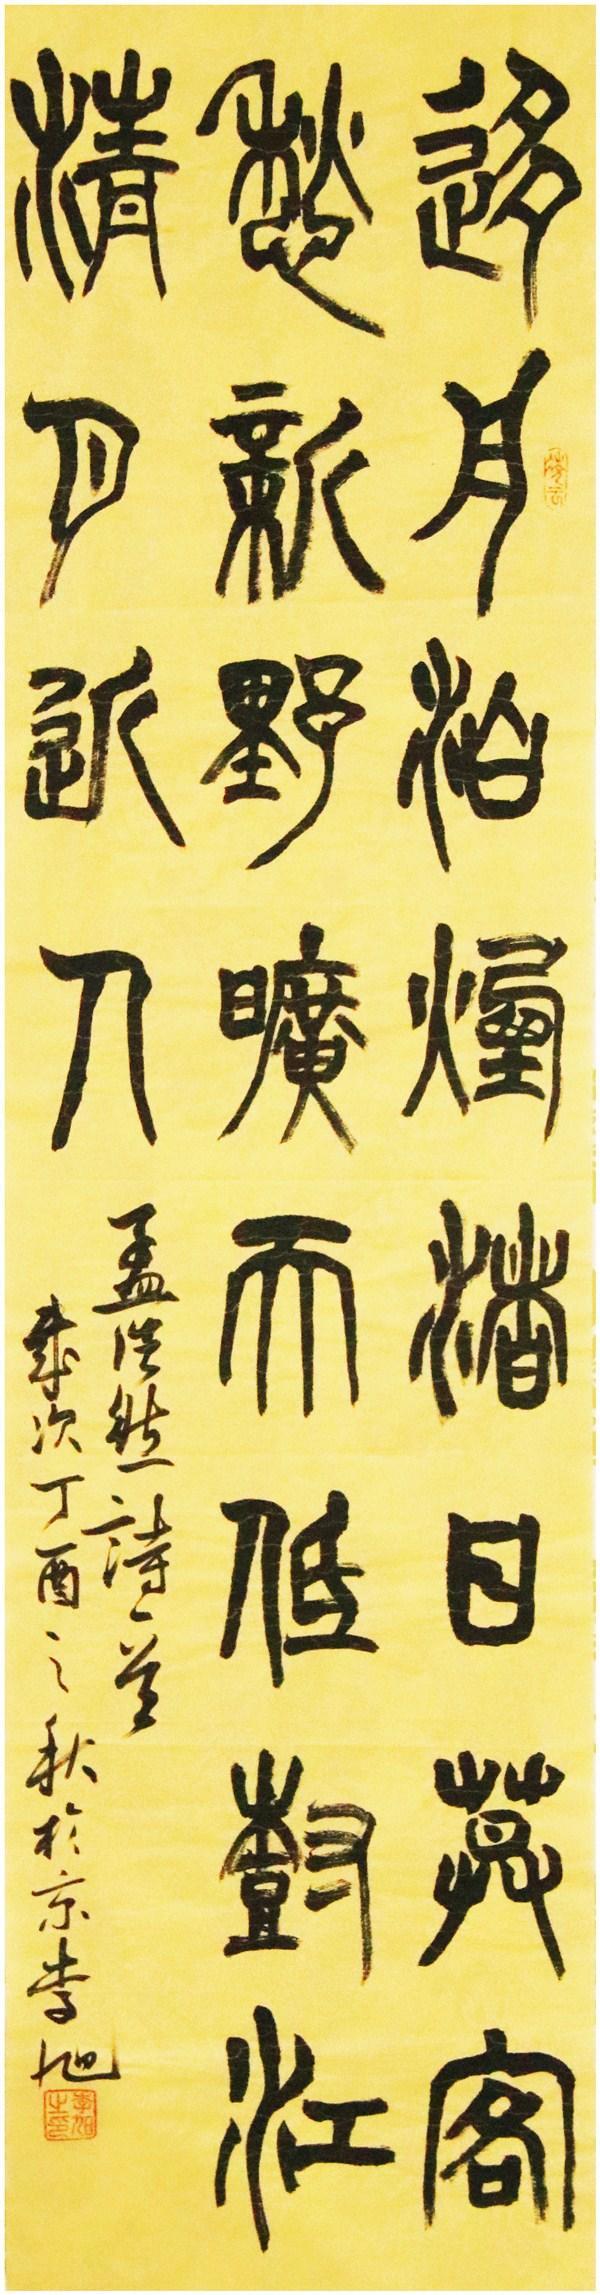 迻舟泊煙渚日莫客
愁新野曠天低樹江
清月近人
孟浩然詩一首
歲次丁酉之秋於京李旭
李旭之印